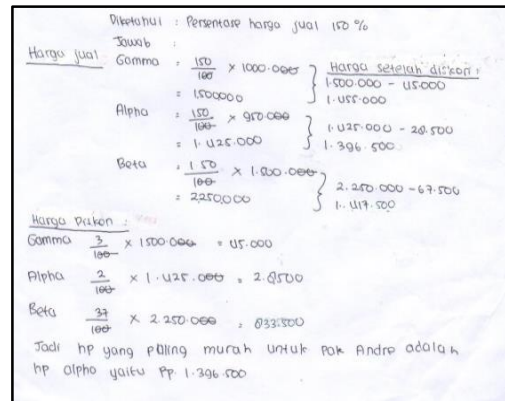 Diketahui : Persentase harga jual 150 %
Jawab :
Harga jual Gamma = 150/100 × 1000.000 } Harga setelah diskon :
= 1.500000 } 1.500.000 - 45.000
1.455.000
Alpha = 150/100 × 950.000 } 1.425.000 - 28.500
= 1.425.000 } 1.396.500
Beta = 150/100 × 1.500.000 } 2.250.000 - 67.500
= 2.250.000 } 1.417.500
Harga Diskon :
Gamma 3/100 × 1500.000 = 45.000
Alpha 2/100 × 1.425.000 = 2.8500
Beta 37/100 × 2.250.000 = 833.500
Jadi hp yang paling murah untuk pak Andre adalah
hp alpha yaitu Rp. 1.396.500